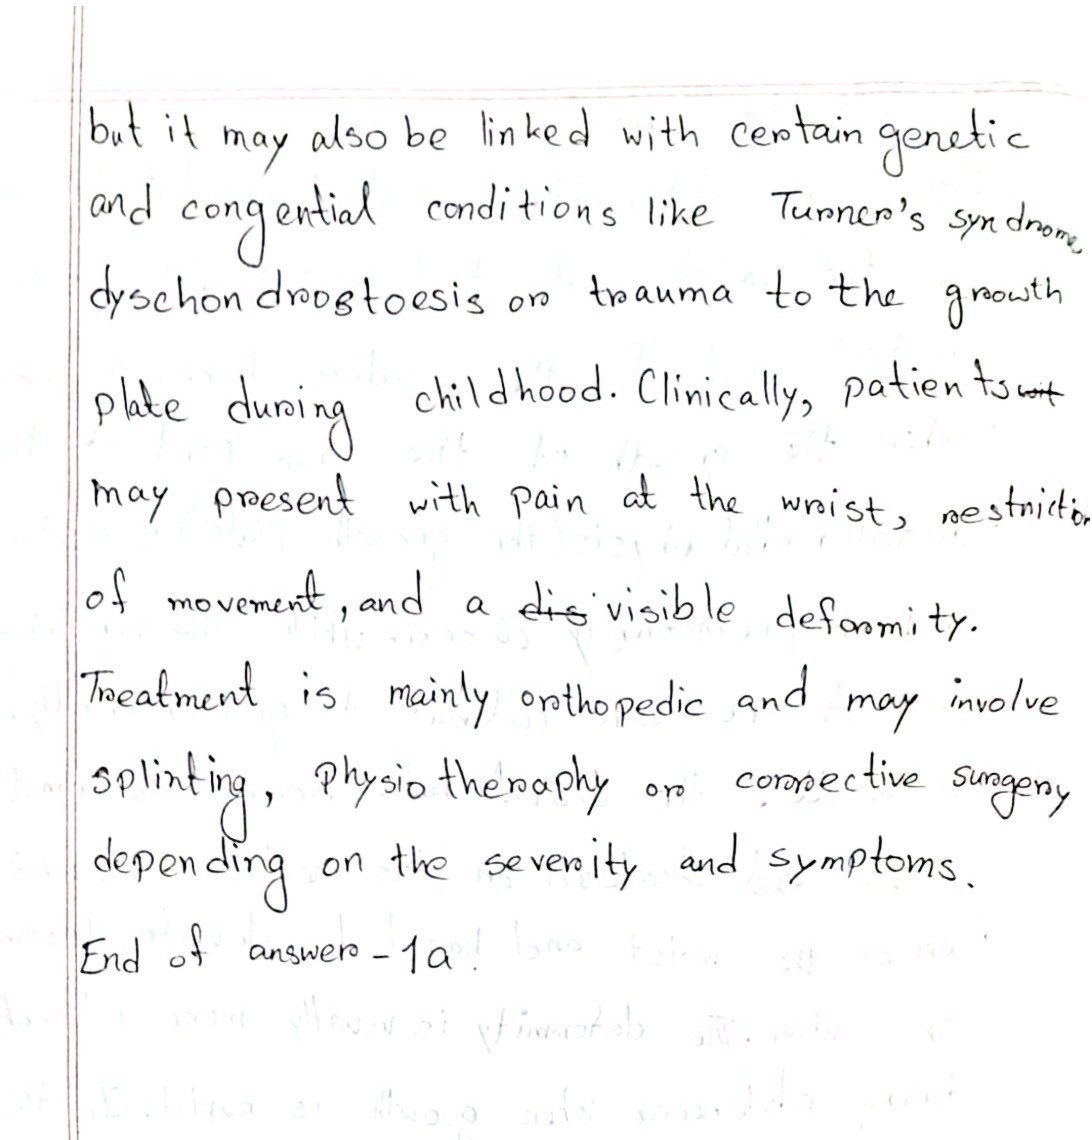 but it may also be linked with certain genetic
and congential conditions like Turner's syndrome
dyschondroostoesis or trauma to the growth
plate during childhood. Clinically, patients wit
may present with pain at the wrist, restriction
of movement, and a dis visible deformity.
Treatment is mainly orthopedic and may involve
splinting, Physiotheraphy or corrective surgery
depending on the severity and symptoms.
End of answer - 1a.